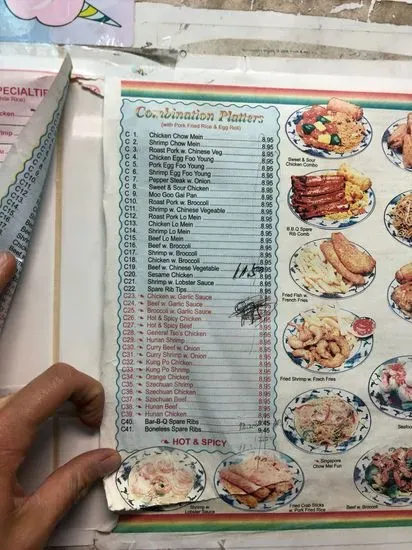 SPECIALTIES
Combination Platters
(with Pork Fried Rice & Egg Roll)
C 1. Chicken Chow Mein 8.95
C 2. Shrimp Chow Mein 8.95
C 3. Roast Pork w. Chinese Veg 8.95
C 4. Chicken Egg Foo Young 8.95
C 5. Pork Egg Foo Young 8.95
C 6. Shrimp Egg Foo Young 8.95
C 7. Pepper Steak w. Onion 8.95
C 8. Sweet & Sour Chicken 8.95
C 9. Moo Goo Gai Pan 8.95
C10. Roast Pork w. Broccoli 8.95
C11. Shrimp w. Chinese Vegeable 8.95
C12. Roast Pork Lo Mein 8.95
C13. Chicken Lo Mein 8.95
C14. Shrimp Lo Mein 8.95
C15. Beef Lo Mein 8.95
C16. Beef w. Broccoli 8.95
C17. Shrimp w. Broccoli 8.95
C18. Chicken w. Broccoli 8.95
C19. Beef w. Chinese Vegetable 8.95
C20. Sesame Chicken 8.95
C21. Shrimp w. Lobster Sauce 8.95
C22. Spare Rib Tips
C23. Chicken w. Garlic Sauce
C24. Beef w. Garlic Sauce
C25. Broccoli w. Garlic Sauce
C26. Hot & Spicy Chicken 8.95
C27. Hot & Spicy Beef 8.95
C28. General Tso's Chicken 8.95
C29. Hunan Shrimp 8.95
C30. Curry Beef w. Onion 8.95
C31. Curry Shrimp w. Onion 8.95
C32. Kung Po Chicken 8.95
C33. Kung Po Shrimp 8.95
C34. Orange Chicken 8.95
C35. Szechuan Shrimp 8.95
C36. Szechuan Chicken 8.95
C37. Szechuan Beef 8.95
C38. Hunan Beef 8.95
C39. Hunan Chicken 8.95
C40. Bar-B-Q Spare Ribs 9.45
C41. Boneless Spare Ribs 9.45
HOT & SPICY
Sweet & Sour
Chicken Combo
B.B.Q Spare
Rib Comb
Fried Fish w.
French Fries
Fried Shrimp w. French Fries
Singapore
Chow Mei Fun
Shrimp w
Lobster Sauce
Fried Crab Sticks
w. Pork Fried Rice
Beef w. Broccoli